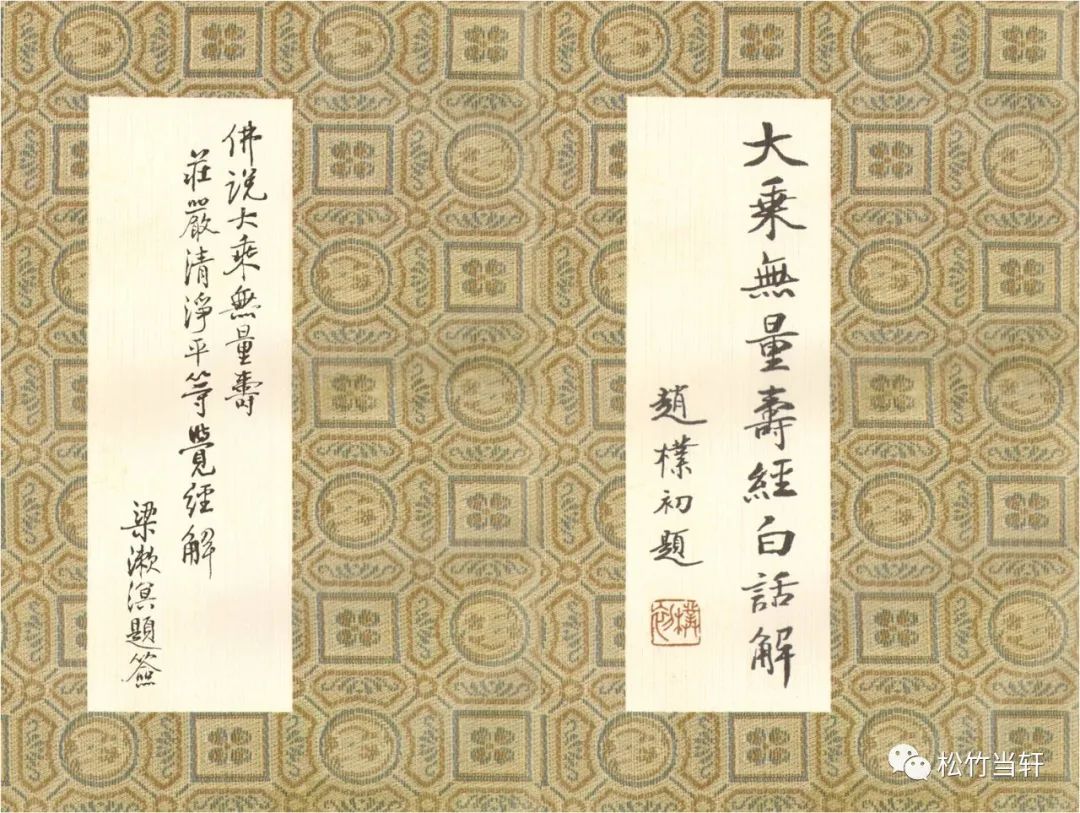 大乘無量壽經白話解
趙樸初題
樸初
佛说大乘無量壽
莊嚴清淨平等覺經解
梁漱溟題簽
松竹当轩